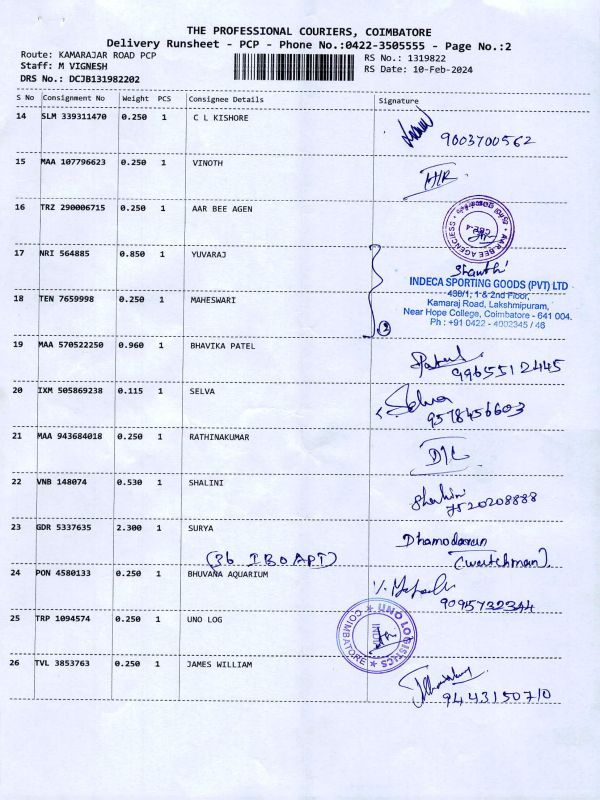 THE PROFESSIONAL COURIERS, COIMBATORE
Delivery Runsheet - PCP - Phone No.:0422-3505555 - Page No.:2
Route: KAMARAJAR ROAD PCP
Staff: M VIGNESH
DRS No.: DCJB131982202
RS No.: 1319822
RS Date: 10-Feb-2024
S No Consignment No Weight PCS Consignee Details Signature
14 SLM 339311470 0.250 1 C L KISHORE
9003700562
15 MAA 107796623 0.250 1 VINOTH
16 TRZ 290006715 0.250 1 AAR BEE AGEN
AAR BEE AGENCIESS
17 NRI 564885 0.850 1 YUVARAJ
Shanthi
INDECA SPORTING GOODS (PVT) LTD
430/1, 1 & 2nd Floor,
18 TEN 7659998 0.250 1 MAHESWARI
Kamaraj Road, Lakshmipuram,
Near Hope College, Coimbatore - 641 004.
Ph : +91 0422 - 4002345 / 46
2
19 MAA 570522250 0.960 1 BHAVIKA PATEL
Patel
9965512445
20 IXM 505869238 0.115 1 SELVA
Selva
9578456603
21 MAA 943684018 0.250 1 RATHINAKUMAR
D/C
22 VNB 148074 0.530 1 SHALINI
Shalini
7520208888
23 GDR 5337635 2.300 1 SURYA
Dhamodaran
(36 IBOAPT)
(watchman).
24 PON 4580133 0.250 1 BHUVANA AQUARIUM
9095732344
25 TRP 1094574 0.250 1 UNO LOG
UNO LOGISTICS
COIMBATORE
26 TVL 3853763 0.250 1 JAMES WILLIAM
9443150710